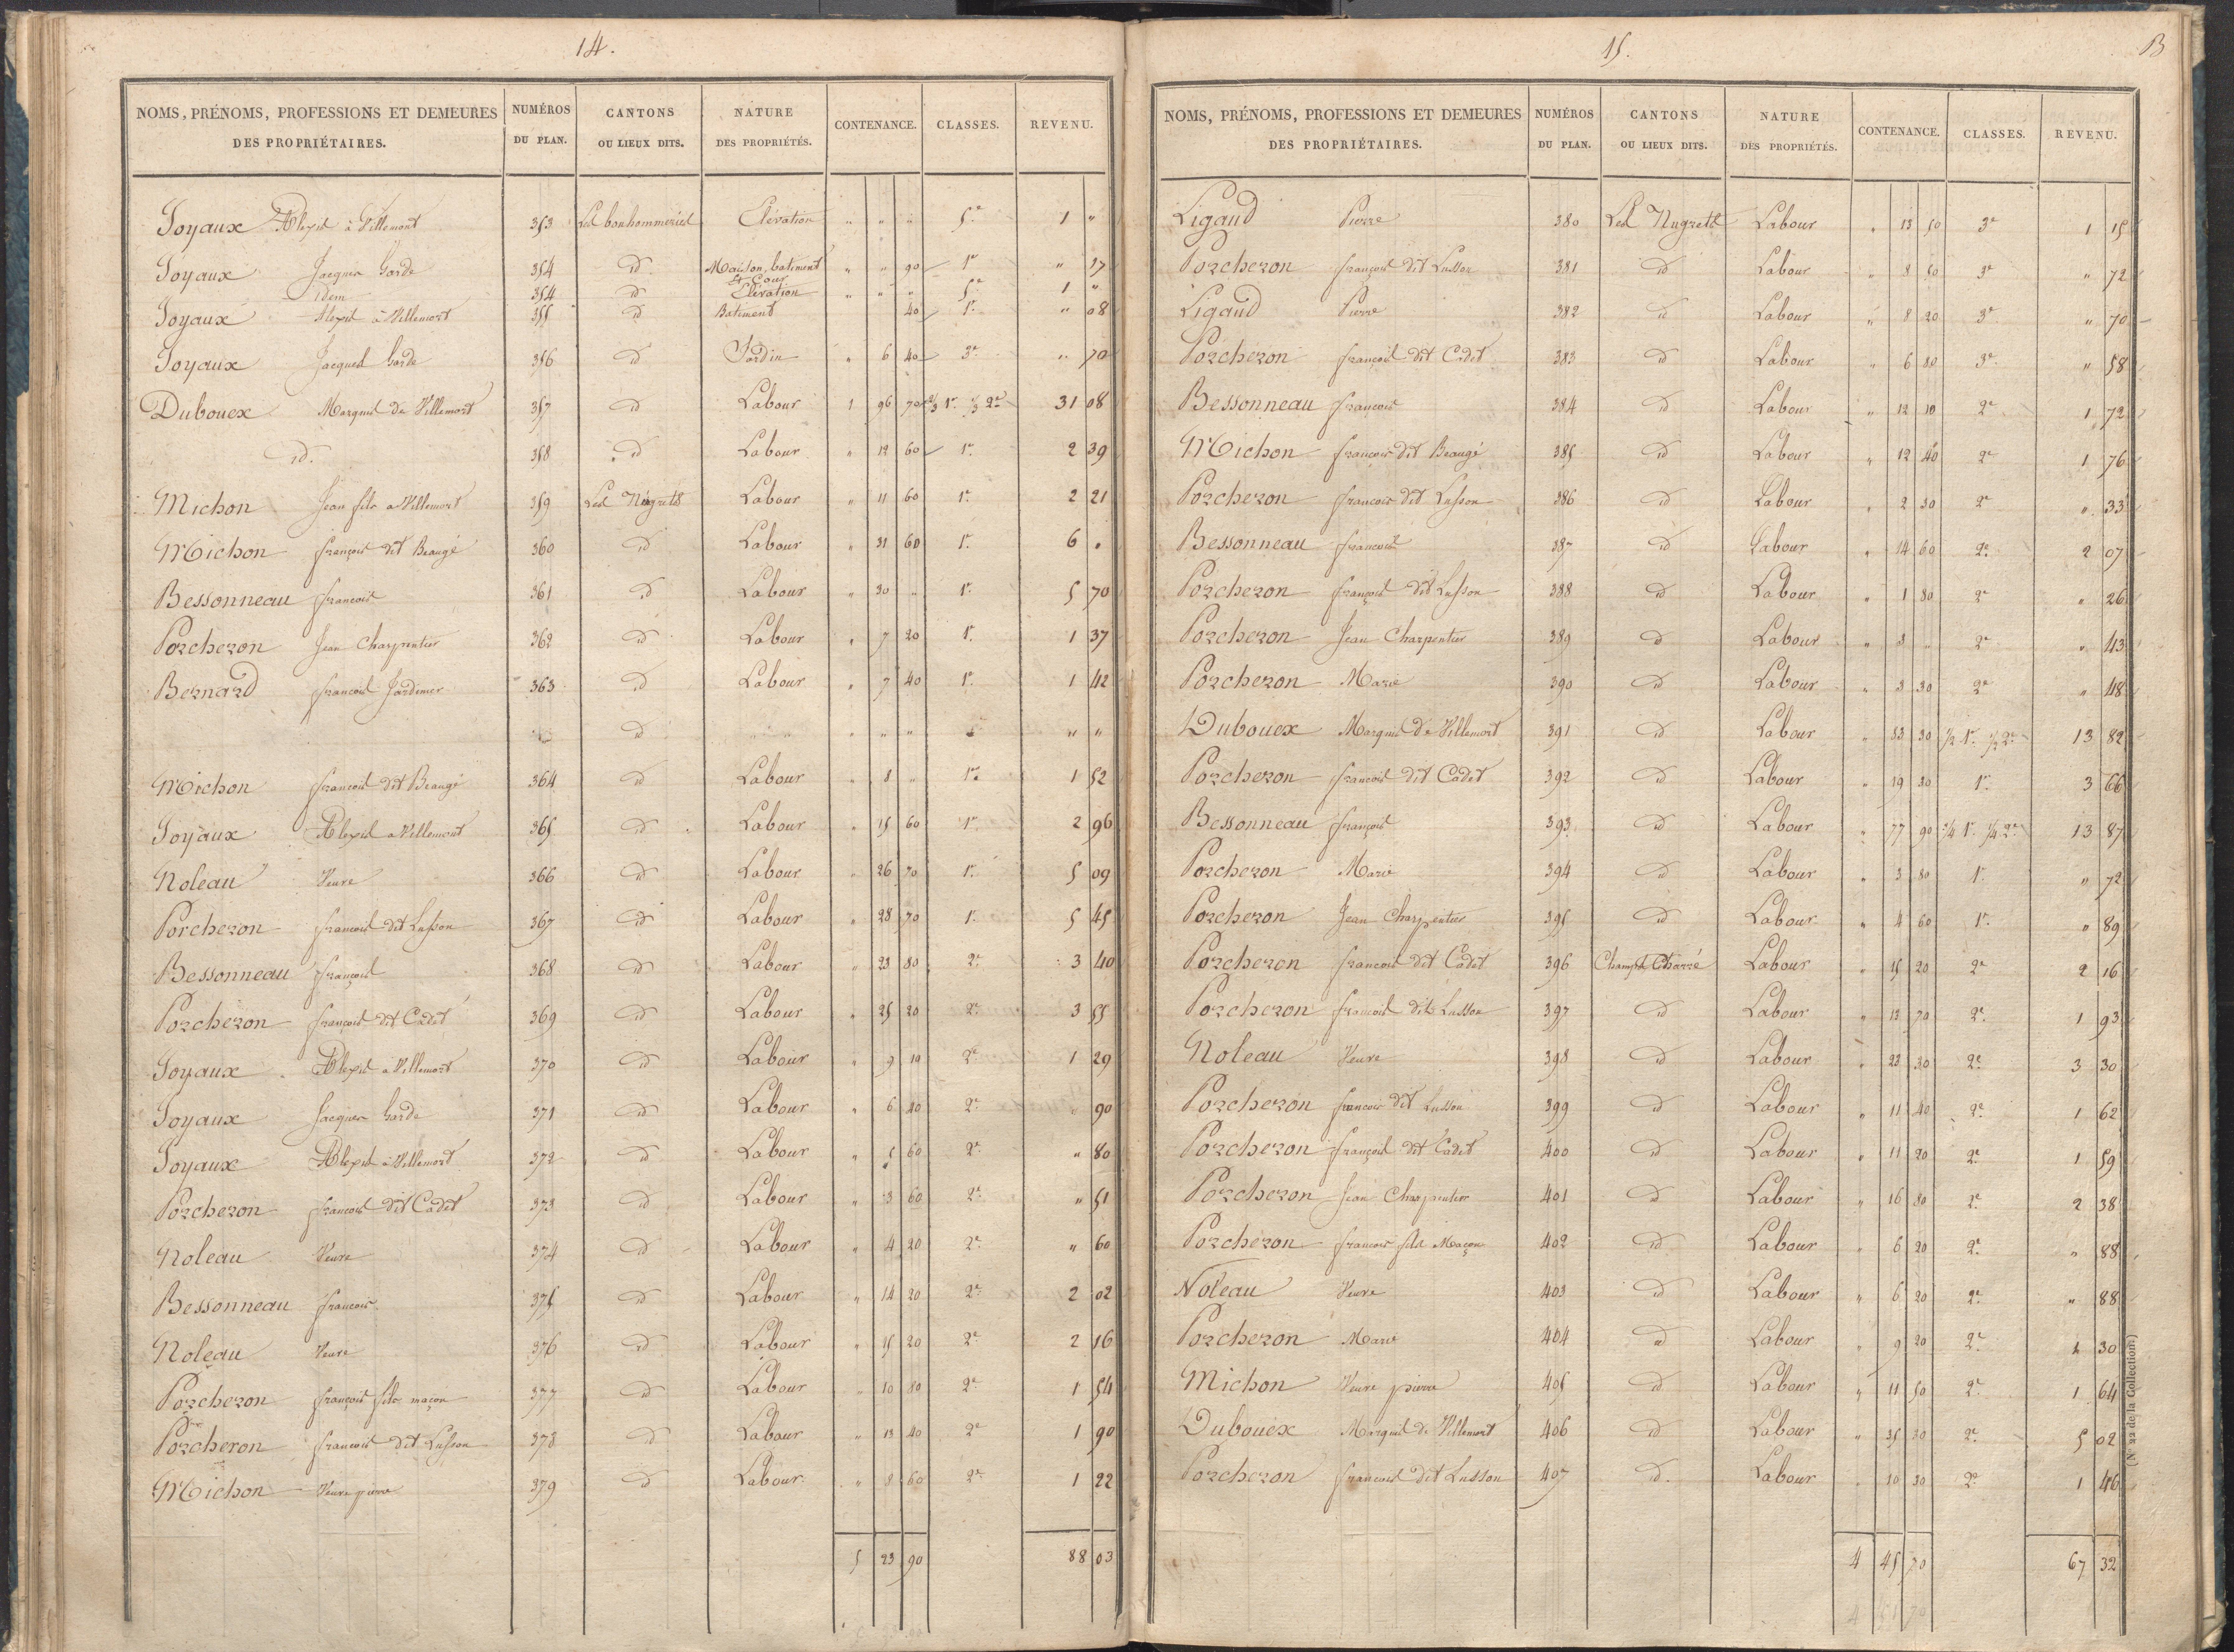 14.
NOMS, PRÉNOMS, PROFESSIONS ET DEMEURES DES PROPRIÉTAIRES. NUMÉROS DU PLAN. CANTONS OU LIEUX DITS. NATURE DES PROPRIÉTÉS. CONTENANCE. CLASSES. REVENU.
Joyaux Alexis à Villemort 353 Les bonhommeries Elévation " " " 5e 1 "
Joyaux Jacques Garde 354 id Maison, batiment et Cour " " 90 1re " 17
idem 354 id Elévation " " " 5e 1 "
Joyaux Alexis à Villemort 355 id Batiment 40 1re " 08
Joyaux Jacques Garde 356 id Jardin " 6 40 3e " 70
Dubouex Marquis de Villemort 357 id Labour 1 96 70 2/3 1re 1/3 2e 31 08
id. 358 id Labour " 12 60 1re 2 39
Michon Jean fils a Villemort 359 Les Nugrets Labour " 11 60 1re 2 21
Michon françois dit Beaugé 360 id Labour " 31 60 1re 6 "
Bessonneau francois 361 id Labour " 30 " 1re 5 70
Porcheron Jean Charpentier 362 id Labour " 7 20 1re 1 37
Bernard francois Jardinier 363 id Labour " 7 40 1re 1 42
id " " " " " "
Michon francois dit Beaugé 364 id Labour " 8 " 1re 1 52
Joyaux Alexis a Villemort 365 id Labour " 15 60 1re 2 96
Noleau Veuve 366 id Labour " 26 70 1re 5 09
Porcheron francois dit Lusson 367 id Labour " 28 70 1re 5 45
Bessonneau françois 368 id Labour " 23 80 2e 3 40
Porcheron françois dit Cadet 369 id Labour " 25 20 2e 3 55
Joyaux Alexis a Villemort 370 id Labour " 9 10 2e 1 29
Joyaux Jacques Garde 371 id Labour " 6 40 2e " 90
Joyaux Alexis à Villemort 372 id Labour " 5 60 2e " 80
Porcheron francois dit Cadet 373 id Labour " 3 60 2e " 51
Noleau Veuve 374 id Labour " 4 20 2e " 60
Bessonneau francois 375 id Labour " 14 20 2e 2 02
Noleau Veuve 376 id Labour " 15 20 2e 2 16
Porcheron françois fils maçon 377 id Labour " 10 80 2e 1 54
Porcheron francois dit Lusson 378 id Labour " 13 40 2e 1 90
Michon Veuve pierre 379 id Labour " 8 60 2e 1 22
5 23 90 88 03
15. 13
NOMS, PRÉNOMS, PROFESSIONS ET DEMEURES DES PROPRIÉTAIRES. NUMÉROS DU PLAN. CANTONS OU LIEUX DITS. NATURE DES PROPRIÉTÉS. CONTENANCE. CLASSES. REVENU.
Ligaud Pierre 380 Les Nugrets Labour " 13 50 3e 1 15
Porcheron françois dit Lusson 381 id Labour " 8 50 3e " 72
Ligaud Pierre 382 id Labour " 8 20 3e " 70
Porcheron françois dit Cadet 383 id Labour " 6 80 3e " 58
Bessonneau françois 384 id Labour " 12 10 2e 1 72
Michon francois dit Beaugé 385 id Labour " 12 40 2e 1 76
Porcheron francois dit Lusson 386 id Labour " 2 30 2e " 33
Bessonneau francois 387 id Labour " 14 60 2e 2 07
Porcheron françois dit Lusson 388 id Labour " 1 80 2e " 26
Porcheron Jean Charpentier 389 id Labour " 3 " 2e " 43
Porcheron Marie 390 id Labour " 3 30 2e " 48
Dubouex Marquis de Villemort 391 id Labour " 83 30 1/2 1re 1/2 2e 13 82
Porcheron francois dit Cadet 392 id Labour " 19 30 1re 3 66
Bessonneau françois 393 id Labour " 77 90 3/4 1re 1/4 2e 13 87
Porcheron Marie 394 id Labour " 3 80 1re " 72
Porcheron Jean Charpentier 395 id Labour " 4 60 1re " 89
Porcheron francois dit Cadet 396 Labour " 15 20 2e 2 16
Porcheron francois dit Lusson 397 id Labour " 13 70 2e 1 93
Noleau Veuve 398 id Labour " 23 30 2e 3 30
Porcheron francois dit Lusson 399 id Labour " 11 40 2e 1 62
Porcheron françois dit Cadet 400 id Labour " 11 20 2e 1 59
Porcheron Jean Charpentier 401 id Labour " 16 80 2e 2 38
Porcheron francois fils Maçon 402 id Labour " 6 20 2e " 88
Noleau Veuve 403 id Labour " 6 20 2e " 88
Porcheron Marie 404 id Labour " 9 20 2e 1 30
Michon Veuve pierre 405 id Labour " 11 50 2e 1 64
Dubouex Marquis de Villemort 406 id Labour " 35 30 2e 5 02
Porcheron francois dit Lusson 407 id. Labour " 10 30 2e 1 46
4 45 70 67 32
(N° 22 de la Collection)